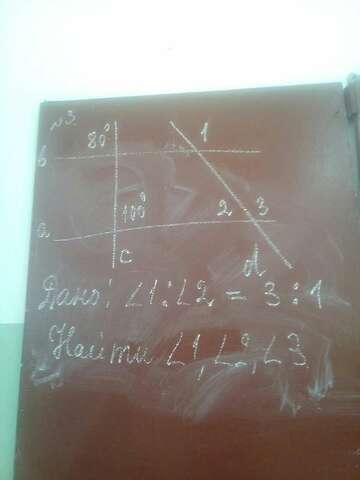 №3.
80° 1
b
100° 2 3
a
c
d
Дано: ∠1:∠2 = 3:1
Найти ∠1, ∠2, ∠3